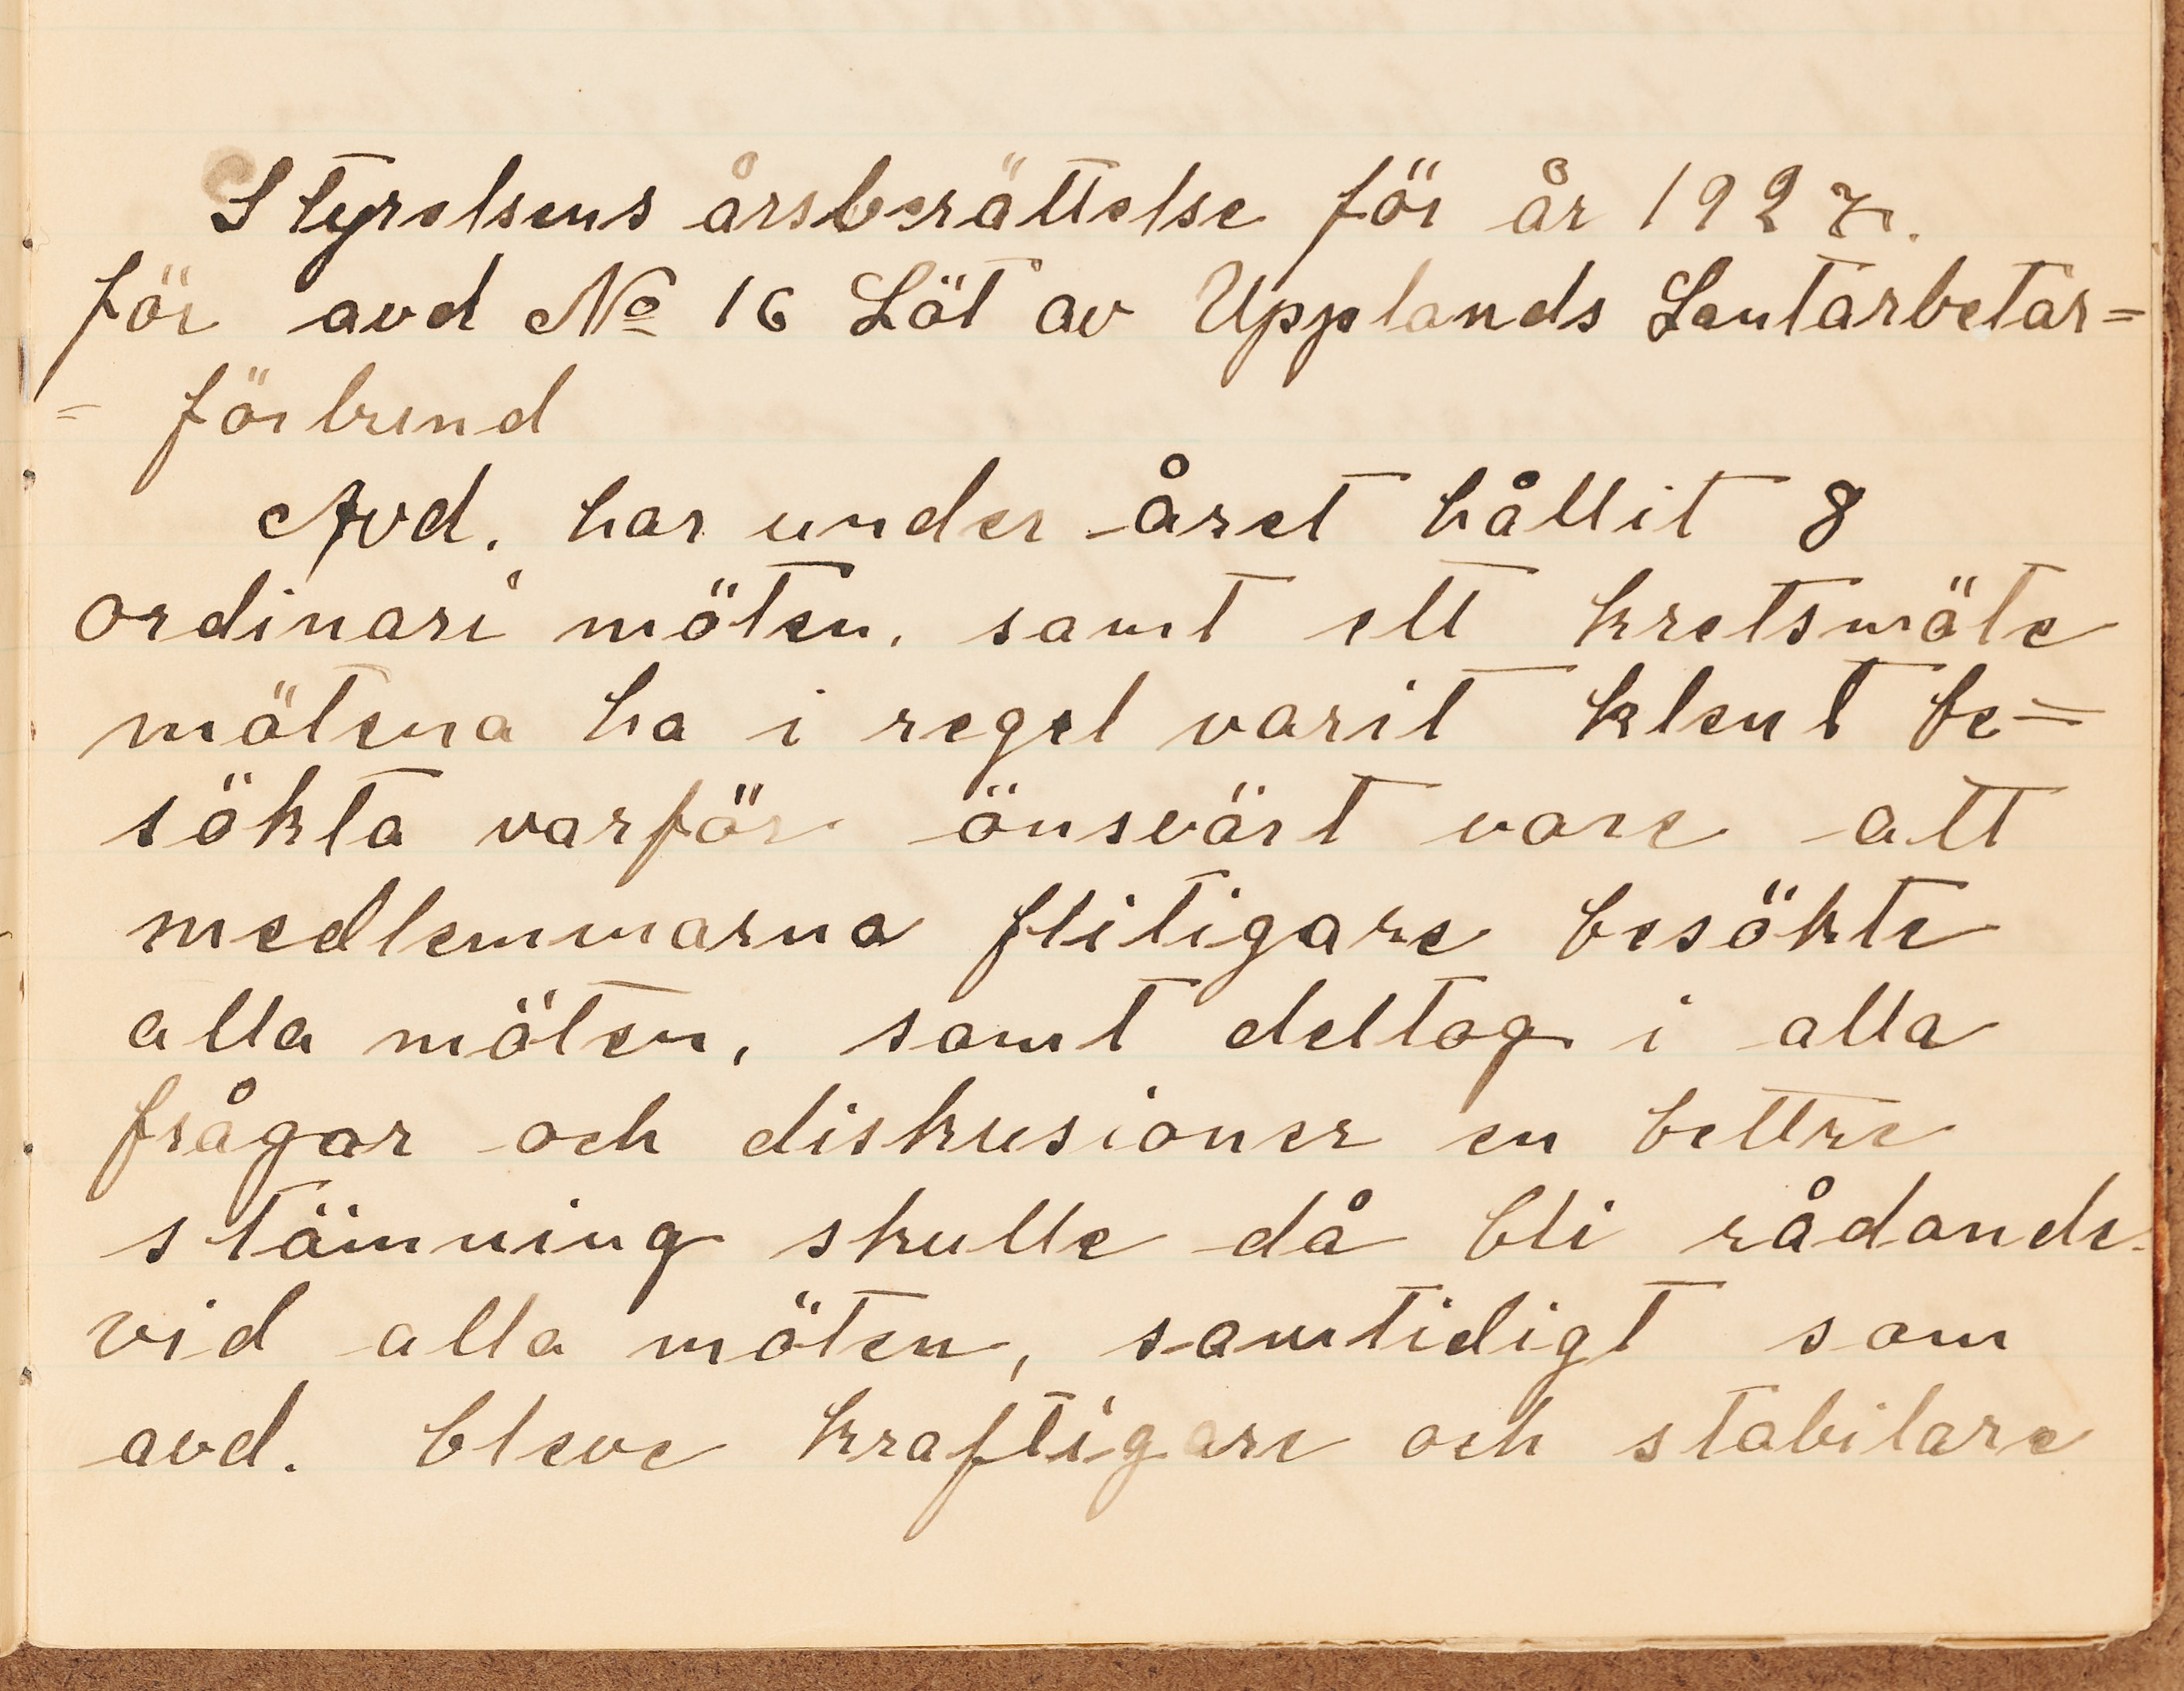 Styrelsens årsberättelse för år 1927.
för avd No 16 Löt av Upplands Lantarbetar=
= förbund
Avd. har under året hållit 8
ordinari möten, samt ett kretsmöte
mötena ha i regel varit klent be=
sökta varför önsvärt vore att
medlemmarna flitigare besökte
alla möten, samt deltog i alla
frågor och diskusioner en bettre
stämning skulle då bli rådande
vid alla möten, samtidigt som
avd. bleve kraftigare och stabilare